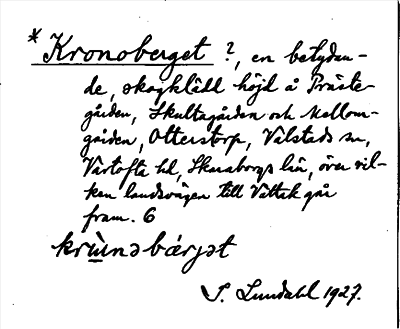 * Kronoberget ?, en betydan-
de, skogklädd höjd å Präste-
gården, Skultagården och Mellom-
gården, Otterstorp, Valstads sn,
Vartofta hd, Skaraborgs län, över vil-
ken landsvägen till Vättak går
fram. 6
krùnəbǽrjət
S. Lundahl 1927.